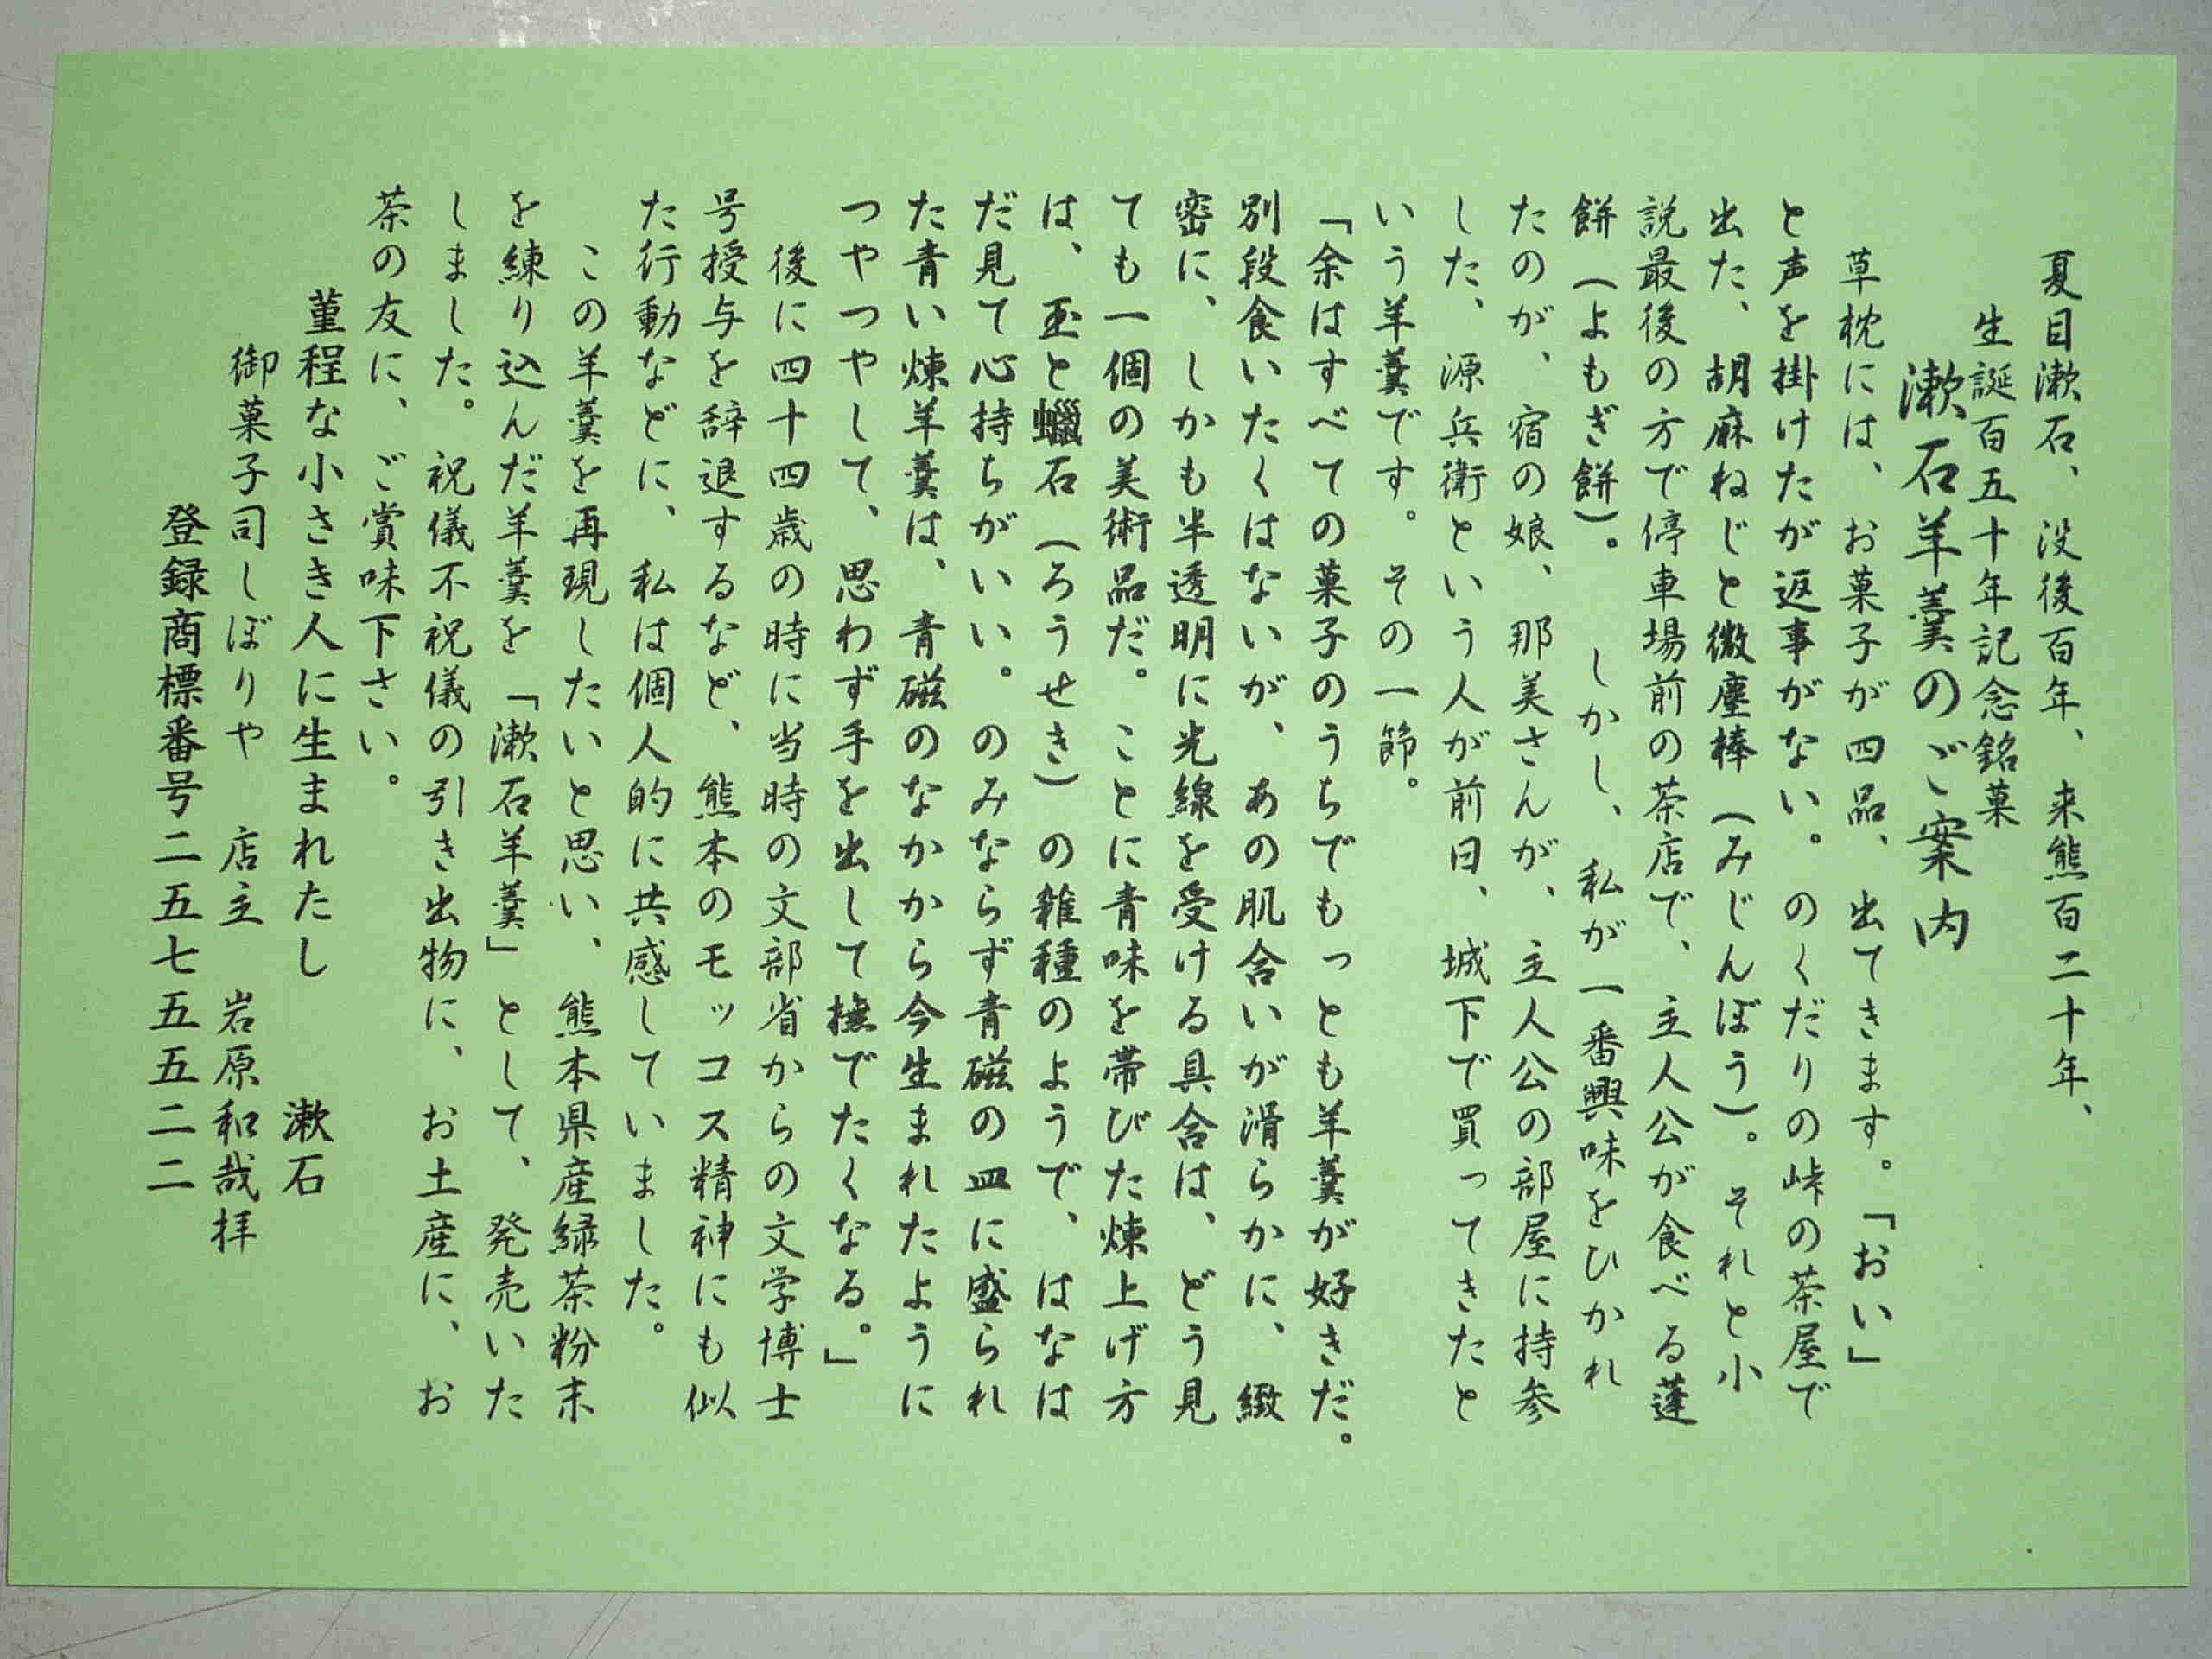 夏目漱石、没後百年、来熊百二十年、
生誕百五十年記念銘菓
漱石羊羹のご案内
草枕には、お菓子が四品、出てきます。「おい」
と声を掛けたが返事がない。のくだりの峠の茶屋で
出た、胡麻ねじと微塵棒(みじんぼう)。それと小
説最後の方で停車場前の茶店で、主人公が食べる蓬
餅(よもぎ餅)。 しかし、私が一番興味をひかれ
たのが、宿の娘、那美さんが、主人公の部屋に持参
した、源兵衛という人が前日、城下で買ってきたと
いう羊羹です。その一節。
「余はすべての菓子のうちでもっとも羊羹が好きだ。
別段食いたくはないが、あの肌合いが滑らかに、緻
密に、しかも半透明に光線を受ける具合は、どう見
ても一個の美術品だ。ことに青味を帯びた煉上げ方
は、玉と蠟石(ろうせき)の雑種のようで、はなは
だ見て心持ちがいい。のみならず青磁の皿に盛られ
た青い煉羊羹は、青磁のなかから今生まれたように
つやつやして、思わず手を出して撫でたくなる。」
後に四十四歳の時に当時の文部省からの文学博士
号授与を辞退するなど、熊本のモッコス精神にも似
た行動などに、私は個人的に共感していました。
この羊羹を再現したいと思い、熊本県産緑茶粉末
を練り込んだ羊羹を「漱石羊羹」として、発売いた
しました。祝儀不祝儀の引き出物に、お土産に、お
茶の友に、ご賞味下さい。
菫程な小さき人に生まれたし 漱石
御菓子司しぼりや 店主 岩原和哉拝
登録商標番号二五七五五二二